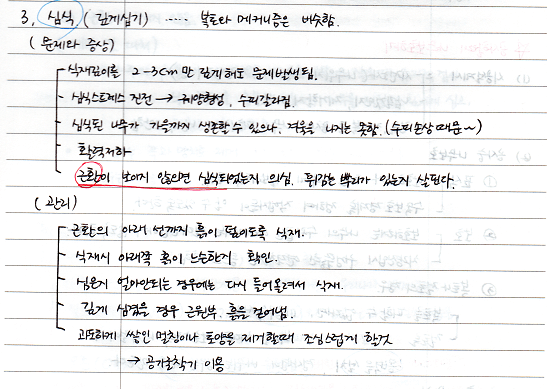 3. 심식. (깊게심기) ..... 복토와 메커니즘은 비슷함.
(문제와 증상)
식재깊이를 2-3cm만 깊게해도 문제발생됨.
심식스트레스 진전 → 궤양형성, 수피갈라짐.
심식된 나무가 가을까지 생존할 수 있으나, 겨울을 나기는 못함. (수피손상때문~)
활력저하
근원이 보이지 않으면 심식되었는지 의심. 휘감는 뿌리가 있는지 살핀다.
(관리)
근원의 아래 선까지 흙이 덮이도록 식재.
식재시 아래쪽 흙이 느슨하기 확인.
심은지 얼마안되는 경우에는 다시 들어올려서 식재.
깊게 심겼을 경우 근원부 흙을 걷어냄.
과도하게 쌓인 멀칭이나 토양을 제거할때 조심스럽게 할것
→ 공기굴착기 이용